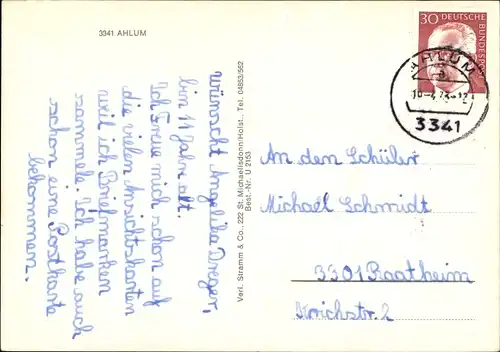 3341 AHLUM
wünscht Angelika Dreger,
bin 11 Jahre alt.
Ich freue mich schon auf
die vielen Ansichtskarten
weil ich Briefmarken
sammele. Ich habe auch
schon eine Postkarte
bekommen.
Verl. Stramm & Co., 222 St. Michaelisdonn/Holst., Tel. 04853/562
Best.-Nr. U 2153
30 DEUTSCHE BUNDESPOST
AHLUM
3341
An den Schüler
Michael Schmidt
3301 Raatheim
2